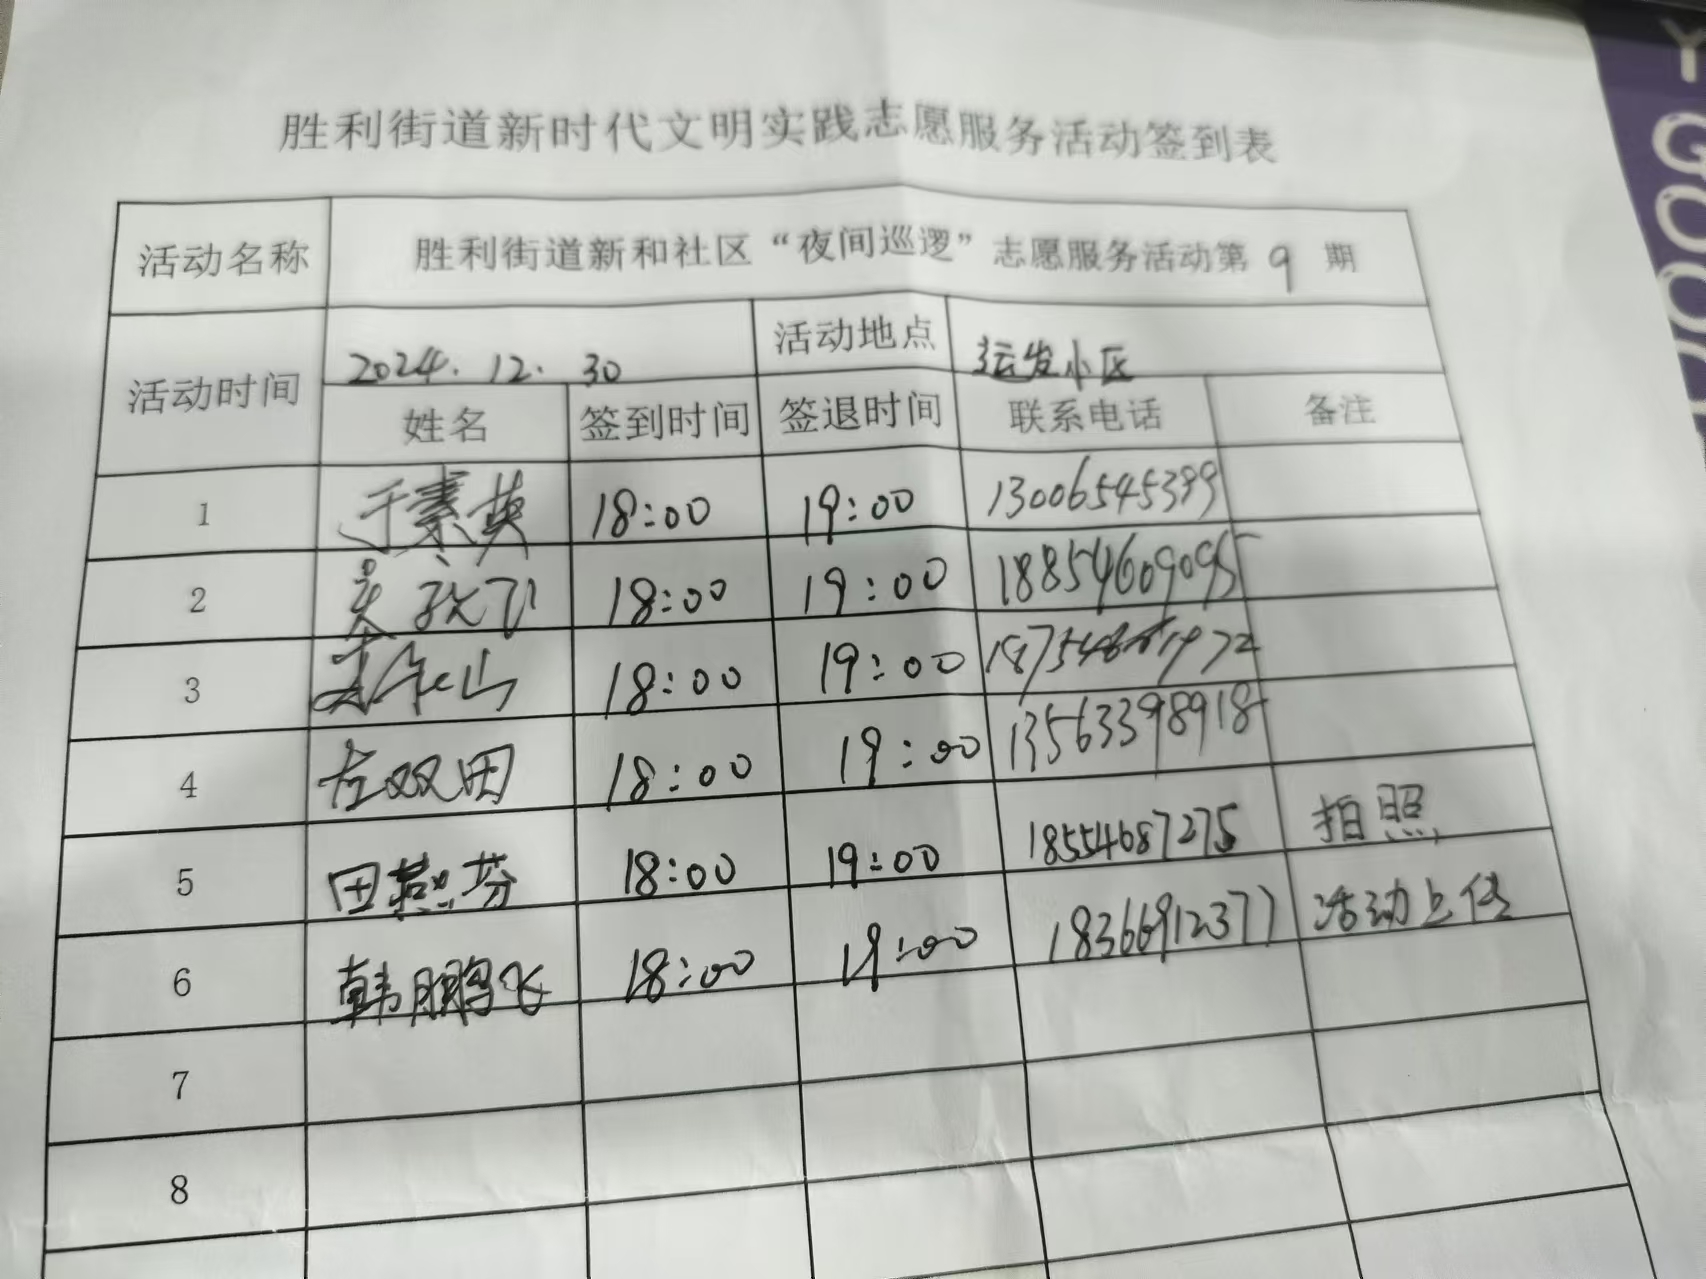 胜利街道新时代文明实践志愿服务活动签到表
活动名称 胜利街道新和社区“夜间巡逻”志愿服务活动第 9 期
活动时间 2024.12.30 活动地点 运发小区
姓名 签到时间 签退时间 联系电话 备注
1 于素英 18:00 19:00 13006545399
2 18:00 19:00 18854609095
3 18:00 19:00
4 左双田 18:00 19:00 13563398918
5 田燕芬 18:00 19:00 18554687275 拍照
6 韩鹏飞 18:00 19:00 18366912377 活动上传
7
8